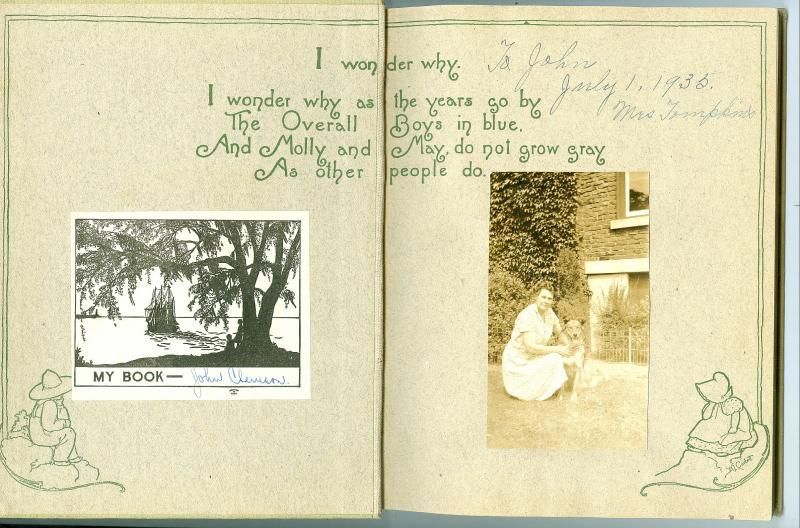 I wonder why.
I wonder why as the years go by
The Overall Boys in blue,
And Molly and May, do not grow gray
As other people do.
To John
July 1, 1935.
Mrs Tompkins
MY BOOK— John Clemson.